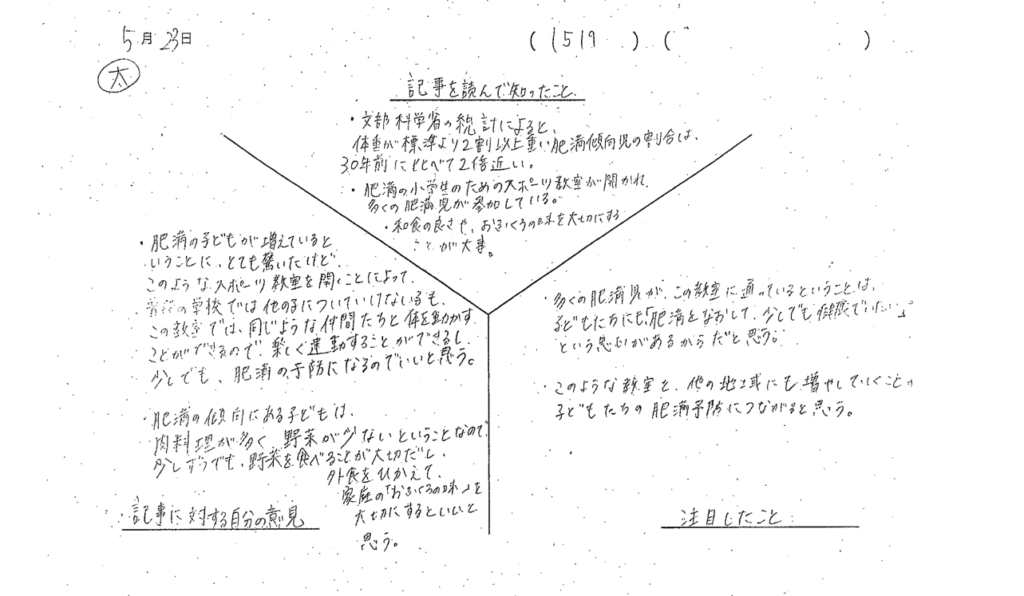 5月23日
(1519)( )
太
記事を読んで知ったこと
・文部科学省の統計によると、
体重が標準より2割以上重い肥満傾向児の割合は、
30年前に比べて2倍近い。
・肥満の小学生のためのスポーツ教室が開かれ、
多くの肥満児が参加している。
・和食の良さや、おふくろの味を大切にする
ことが大事。
・肥満の子どもが増えていると
いうことに、とても驚いたけど、
このようなスポーツ教室を開くことによって、
学校では他の子についていけない子も、
この教室では、同じような仲間たちと体を動かす
ことができるので、楽しく運動することができるし、
少しでも、肥満の予防になるのでいいと思う。
・肥満の傾向にある子どもは、
肉料理が多く、野菜が少ないということなので、
少しずつでも、野菜を食べることが大切だし、
外食をひかえて、
家庭の「おふくろの味」を
大切にするといいと
思う。
記事に対する自分の意見
・多くの肥満児が、この教室に通っているということは、
子どもたちにも「肥満をなおして、少しでも健康でいたい」
という思いがあるからだと思う。
・このような教室を、他の地域にも増やしていくことが
子どもたちの肥満予防につながると思う。
注目したこと